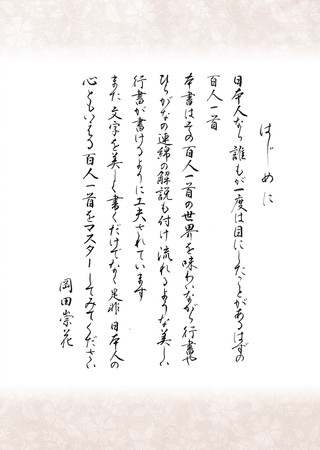 はじめに
日本人なら誰もが一度は目にしたことがあるはずの
百人一首
本書はその百人一首の世界を味わいながら行書や
ひらがなの連綿の解説も付け流れるような美しい
行書が書けるように工夫されています
また文字を美しく書くだけでなく是非日本人の
心ともいえる百人一首をマスターしてみてください
岡田崇花